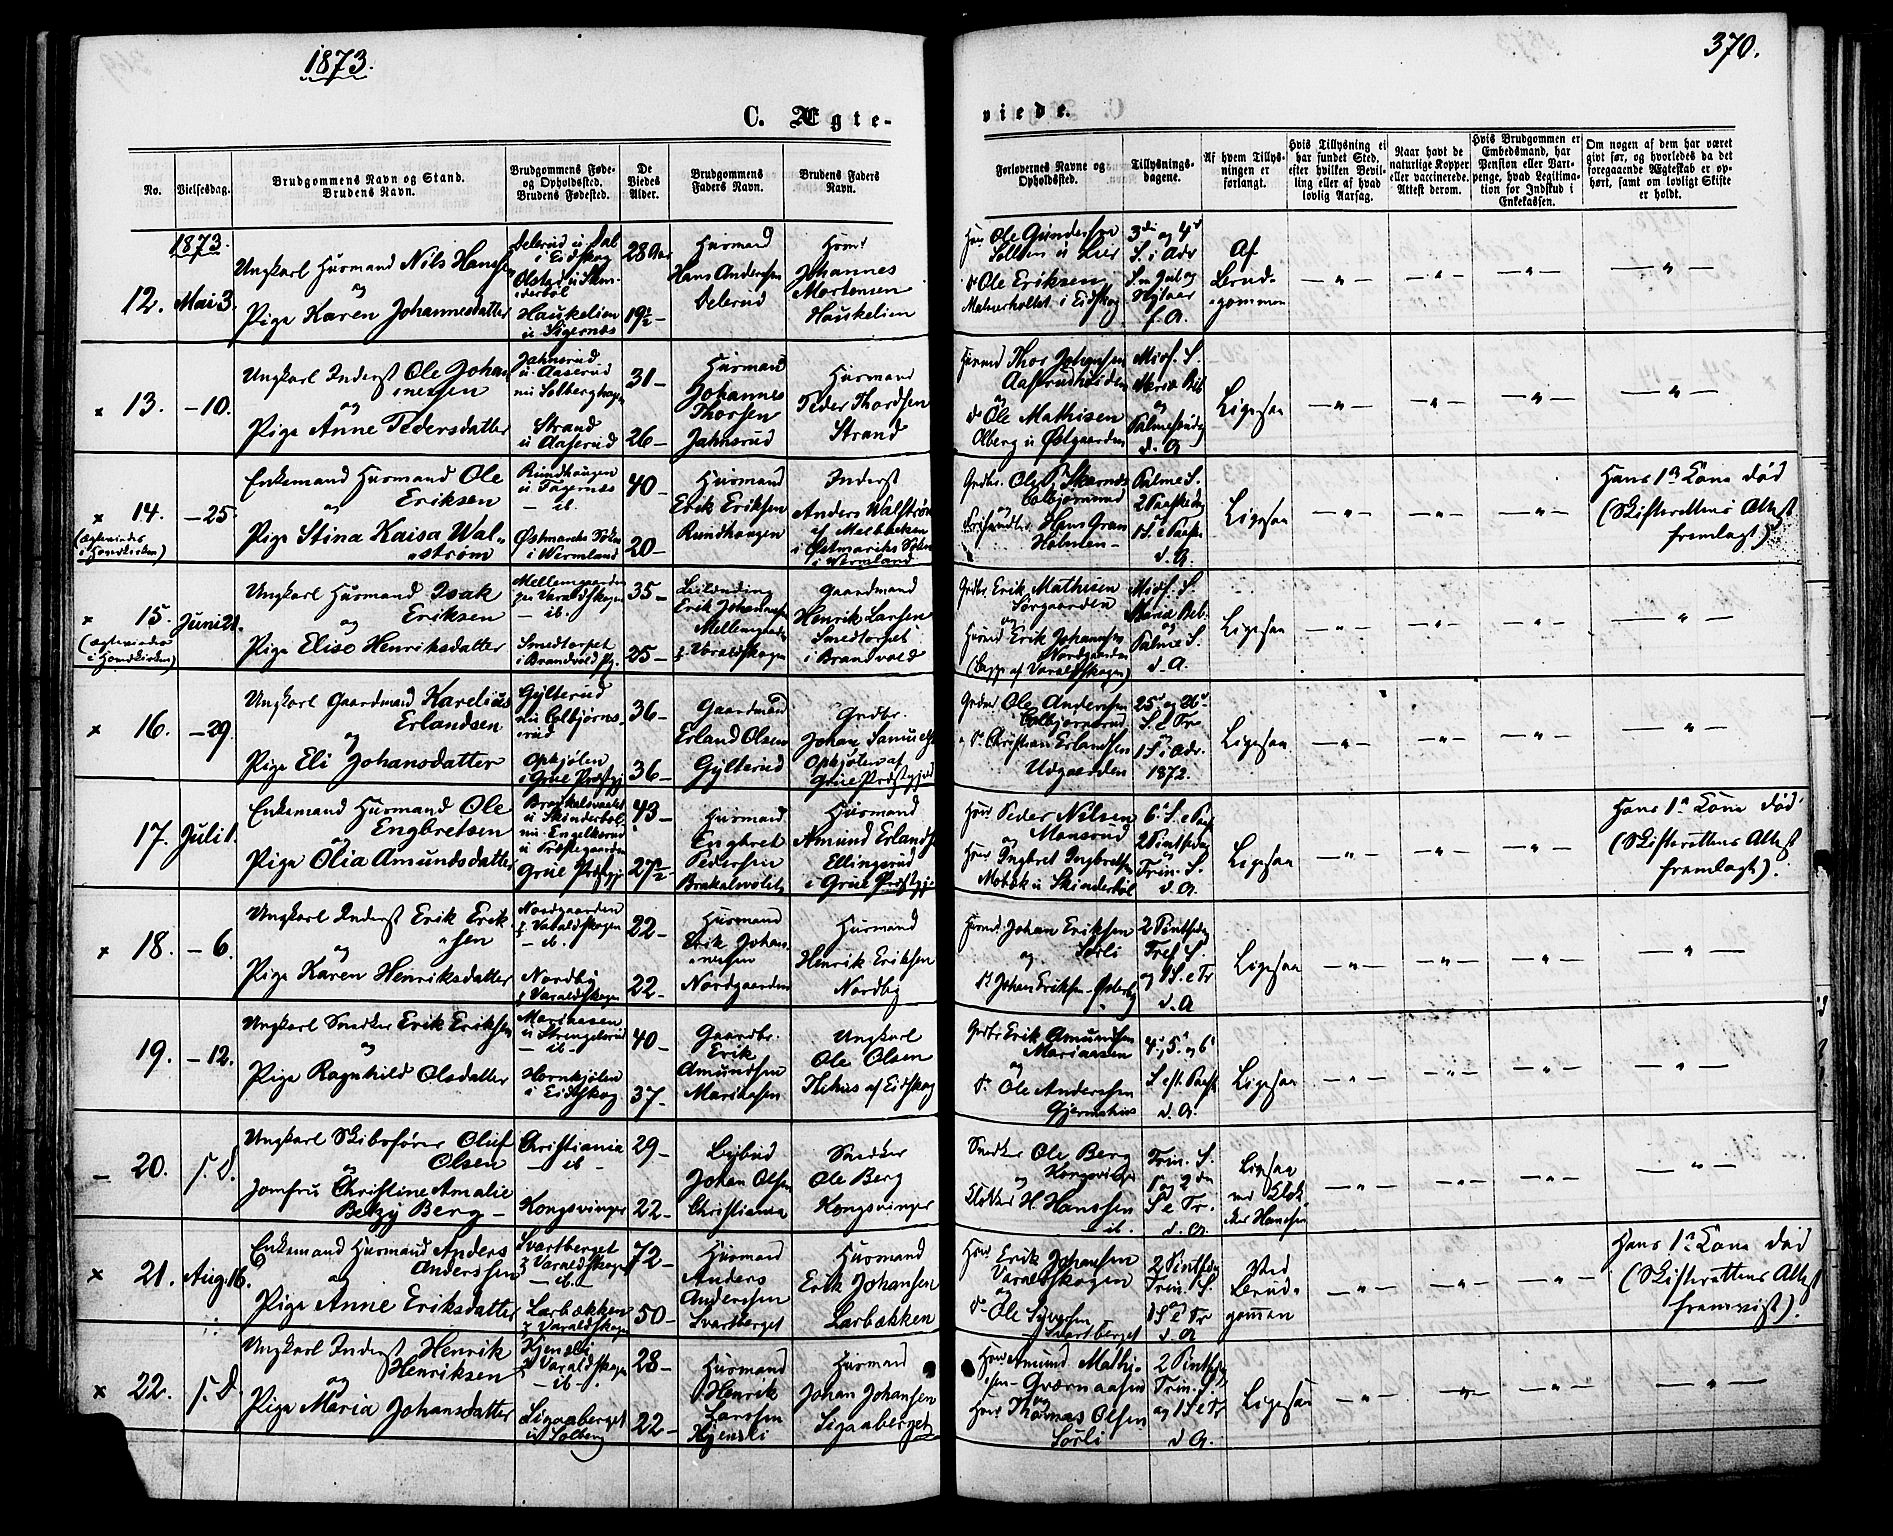 1873.
370.
C. Ægte-
viede.
No.
Vielsesdag.
Brudgommens Navn og Stand.
Brudens Navn.
Brudgommens Føde-
og Opholdssted.
Brudens Fødested.
De
Viedes
Alder.
Brudgommens
Faders Navn.
Brudens Faders
Navn.
Forlovernes Navne og
Opholdssted.
Tillysnings-
dagene.
Af hvem Tillys-
ningen er
forlangt.
Hvis Tillysning ei
har fundet Sted,
efter hvilken Bevil-
ling eller af hvad
lovlig Aarsag.
Naar havt de
naturlige Kopper
eller vaccinerede.
Attest derom.
Hvis Brudgommen er
Embedsmand, har
Pension eller Vart-
penge, hvad Legitima-
tion for Indskud i
Enkekassen.
Om nogen af dem har været
givt før, og hvorledes da det
foregaaende Ægteskab er op-
hørt, samt om lovligt Skifte
er holdt.
1873.
12. Mai 3.
Ungkarl Husmand Nils Hansen
og
Pige Karen Johannesdatter
i Eidskog
Haukelien
u Sigernæs
28 Aar
19½ -
Husmand
Hans Andersen
Delerud
Husmd
Johannes
Mortensen
Haukelien
Husmd Ole Gundersen
do Ole Eriksen
i Eidskog
3die og 4de
S. i Adv
S. e Jul og
Nytaar
f. A.
Af
Brud-
gommen
x 13. - 10.
Ungkarl Inderst Ole Johan-
nesen
og
Pige Anne Pedersdatter
Jahnsrud
u. Aaserud
nu Solberghagen
Strand
u Aaserud
31 -
26 -
Husmand
Johannes
Thorsen
Jahnsrud
Husmand
Peder Thordsen
Strand
Husmd Thor Johansen
og
do Ole Mathisen
Olberg u Østgaarden
Misf. S.
Maria Beb
og
Palmesøndag
d. A.
Ligesaa
x 14. - 25.
(Ægteviede
i Hovedkirken)
Enkemand Husmand Ole
Eriksen
og
Pige Stina Kaisa Wal-
strøm
Rundhaugen
u Tagernæs
- ib.
Østmarks Sokn
i Wermland
40 -
20 -
Husmand
Erik Eriksen
Rundhaugen
Inderst
Anders Walstrøm
af
i Østmarks Sokn
i Wermland
Grdbr. Ole P. Skarnæs
Colbjørnsrud
og
Hans Gran
Holmen -
Palme S.
2 Paaskedag
1 S. e Paaske
d. A.
Ligesaa
Hans 1ste Kone død
(Skifterettens Attest
fremlagt).
x 15. Juni 21.
(Ægteviede
i Hovedkirken)
Ungkarl Husmand Isak
Eriksen
og
Pige Elise Henriksdatter
Mellemgaarden
paa Varaldskogen
- ib -
Smedtorpet
i Brandvold Pg.
35 -
25 -
Leilænding
Erik Johannesen
Mellemgaarden
p. Varaldskogen
Gaardmand
Henrik Larsen
Smedtorpet
i Brandvold
Grdbr. Erik Mathisen
Sørgaarden
og
Husmd Erik Johannesen
Nordgaarden
(Begge af Varaldskogen)
Misf. S.
Maria Beb.
og
Palme S.
d. A.
Ligesaa
x 16. - 29.
Ungkarl Gaardmand Karelius
Erlandsen
og
Pige Eli Johansdatter
Gylterud
nu Colbjørns-
rud
Opkjølen
i Grue Præstgj
36 -
36 -
Gaardmand
Erland Olsen
Gylterud
Grdbr.
Johan Samuelsen
Opkjølen af
Grue Præstgjeld
Grdmd Ole Andersen
Colbjørnsrud
do Christian Erlandsen
Udgaarden
25de og 26de
S. e Tr.
og
1 S i Adv.
1872.
Ligesaa
17. Juli 1.
Enkemand Husmand Ole
Engbretsen
og
Pige Olia Amundsdatter
u Skinderbøl
nu Engelksrud
u Præstegaarden
Grue Præstgj
43 -
27½ -
Husmand
Engbret
Pedersen
Husmand
Amund Erlandsen
Ellingsrud
i Grue Præstgj
Husmd Peder Nilsen
Monsrud
og
Husmd Ingbret Ingbretsen
Mobæk u Skinderbøl
6te S. e Paaske
2 Pintsedag
og
Trin. S.
d. A.
Ligesaa
Hans 1ste Kone død
(Skifterettens Attest
fremlagt).
x 18. - 6.
Ungkarl Inderst Erik Erik-
sen
og
Pige Karen Henriksdatter
Nordgaarden
p. Varaldskogen
- ib.
Nordby
p. Varaldskogen
22 -
22 -
Husmand
Erik Johan-
nesen
Nordgaarden
Husmand
Henrik Eriksen
Nordby
Husmd Johan Eriksen
og Sørli
do Johan Eriksen - Østerby
2 Pintsedag
Tref. S.
og 1 S. e Tr
d. A
Ligesaa
19. - 12.
Ungkarl Snedker Erik Eriksen
og
Pige Ragnhild Olsdatter
Mariaasen
u Strengelsrud
- ib -
Hornkjølen
i Eidskog
40 -
37 -
Gaardbr.
Erik
Amundsen
Mariaasen
Ungkarl
Ole Olsen
af Eidskog
Grdbr Erik Amundsen
Mariaasen
og
do Ole Andersen
4de, 5te og 6te
S. eft. Paaske
d. A.
Ligesaa
- 20. s. D.
Ungkarl Skibsfører Oluf
Olsen
og
Jomfru Christine Amalie
Betzy Berg -
Christiania
- ib -
Kongsvinger
29 -
22 -
Johan Olsen
Christiania
Snedker
Ole Berg
Kongsvinger
Snedker Ole Berg
Kongsvinger
og
Klokker H. Hanssen
- ib.
Trin. S.
1 og 2den
S e Tr.
d. A.
Ligesaa
ved Klok
ker Hanssen
x 21. Aug. 16.
Enkemand Husmand Anders
Anderssen
og
Pige Anne Eriksdatter
Svartberget
p. Varaldskogen
- ib -
Larbækken
p. Varaldskogen
72 -
50 -
Husmand
Anders
Andersen
Svartberget
Husmand
Erik Johansen
Larbækken
Husmd Erik Johansen
Varaldskogen
og
do Ole Syversen
Svartberget
2 Pintsedag
Trin. S.
og
1 S e Tr
d. A
Ved
Brud-
gommen
Hans 1ste Kone død
(Skifterettens Attest
fremvist).
x 22. s. D.
Ungkarl Inderst Henrik
Henriksen
og
Pige Maria Johansdatter
Kjensli
p. Varaldskogen
- ib -
Sigaaberget
u Solberg
28 -
22 -
Husmand
Henrik
Larssen
Kjensli
Husmand
Johan Johansen
Sigaaberget
Husmd Amund Mathi-
sen - Qværnaasen
og
Husmd Thomas Olsen
Sørli
2 Pintsedag
Trin. S.
og 1 S e Tr.
d A.
Ligesaa